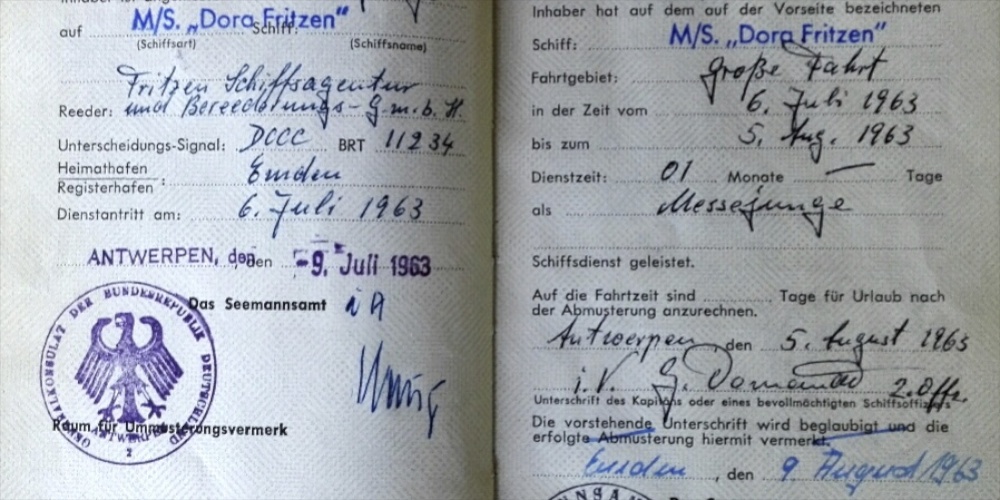 auf M/S. „Dora Fritzen" Schiff:
(Schiffsart) (Schiffsname)
Fritzen Schiffsagentur
Reeder: und Bereederungs-G.m.b.H.
Unterscheidungs-Signal: DCCC BRT 11234
Heimathafen
Registerhafen : Emden
Dienstantritt am: 6. Juli 1963
ANTWERPEN, den den -9. Juli 1963
Das Seemannsamt iA
GENERALKONSULAT DER BUNDESREPUBLIK DEUTSCHLAND
ANTWERPEN
2
Raum für Ummusterungsvermerk
Inhaber hat auf dem auf der Vorseite bezeichneten
Schiff: M/S. „Dora Fritzen"
Fahrtgebiet: große Fahrt
in der Zeit vom 6. Juli 1963
bis zum 5. Aug. 1963
Dienstzeit: 01 Monate — Tage
als Messejunge
Schiffsdienst geleistet.
Auf die Fahrtzeit sind Tage für Urlaub nach
der Abmusterung anzurechnen.
Antwerpen, den 5. August 1963
i.V. G. 2. Offz.
Unterschrift des Kapitäns oder eines bevollmächtigten Schiffsoffiziers
Die vorstehende Unterschrift wird beglaubigt und die
erfolgte Abmusterung hiermit vermerkt.
Emden, den 9. August 1963